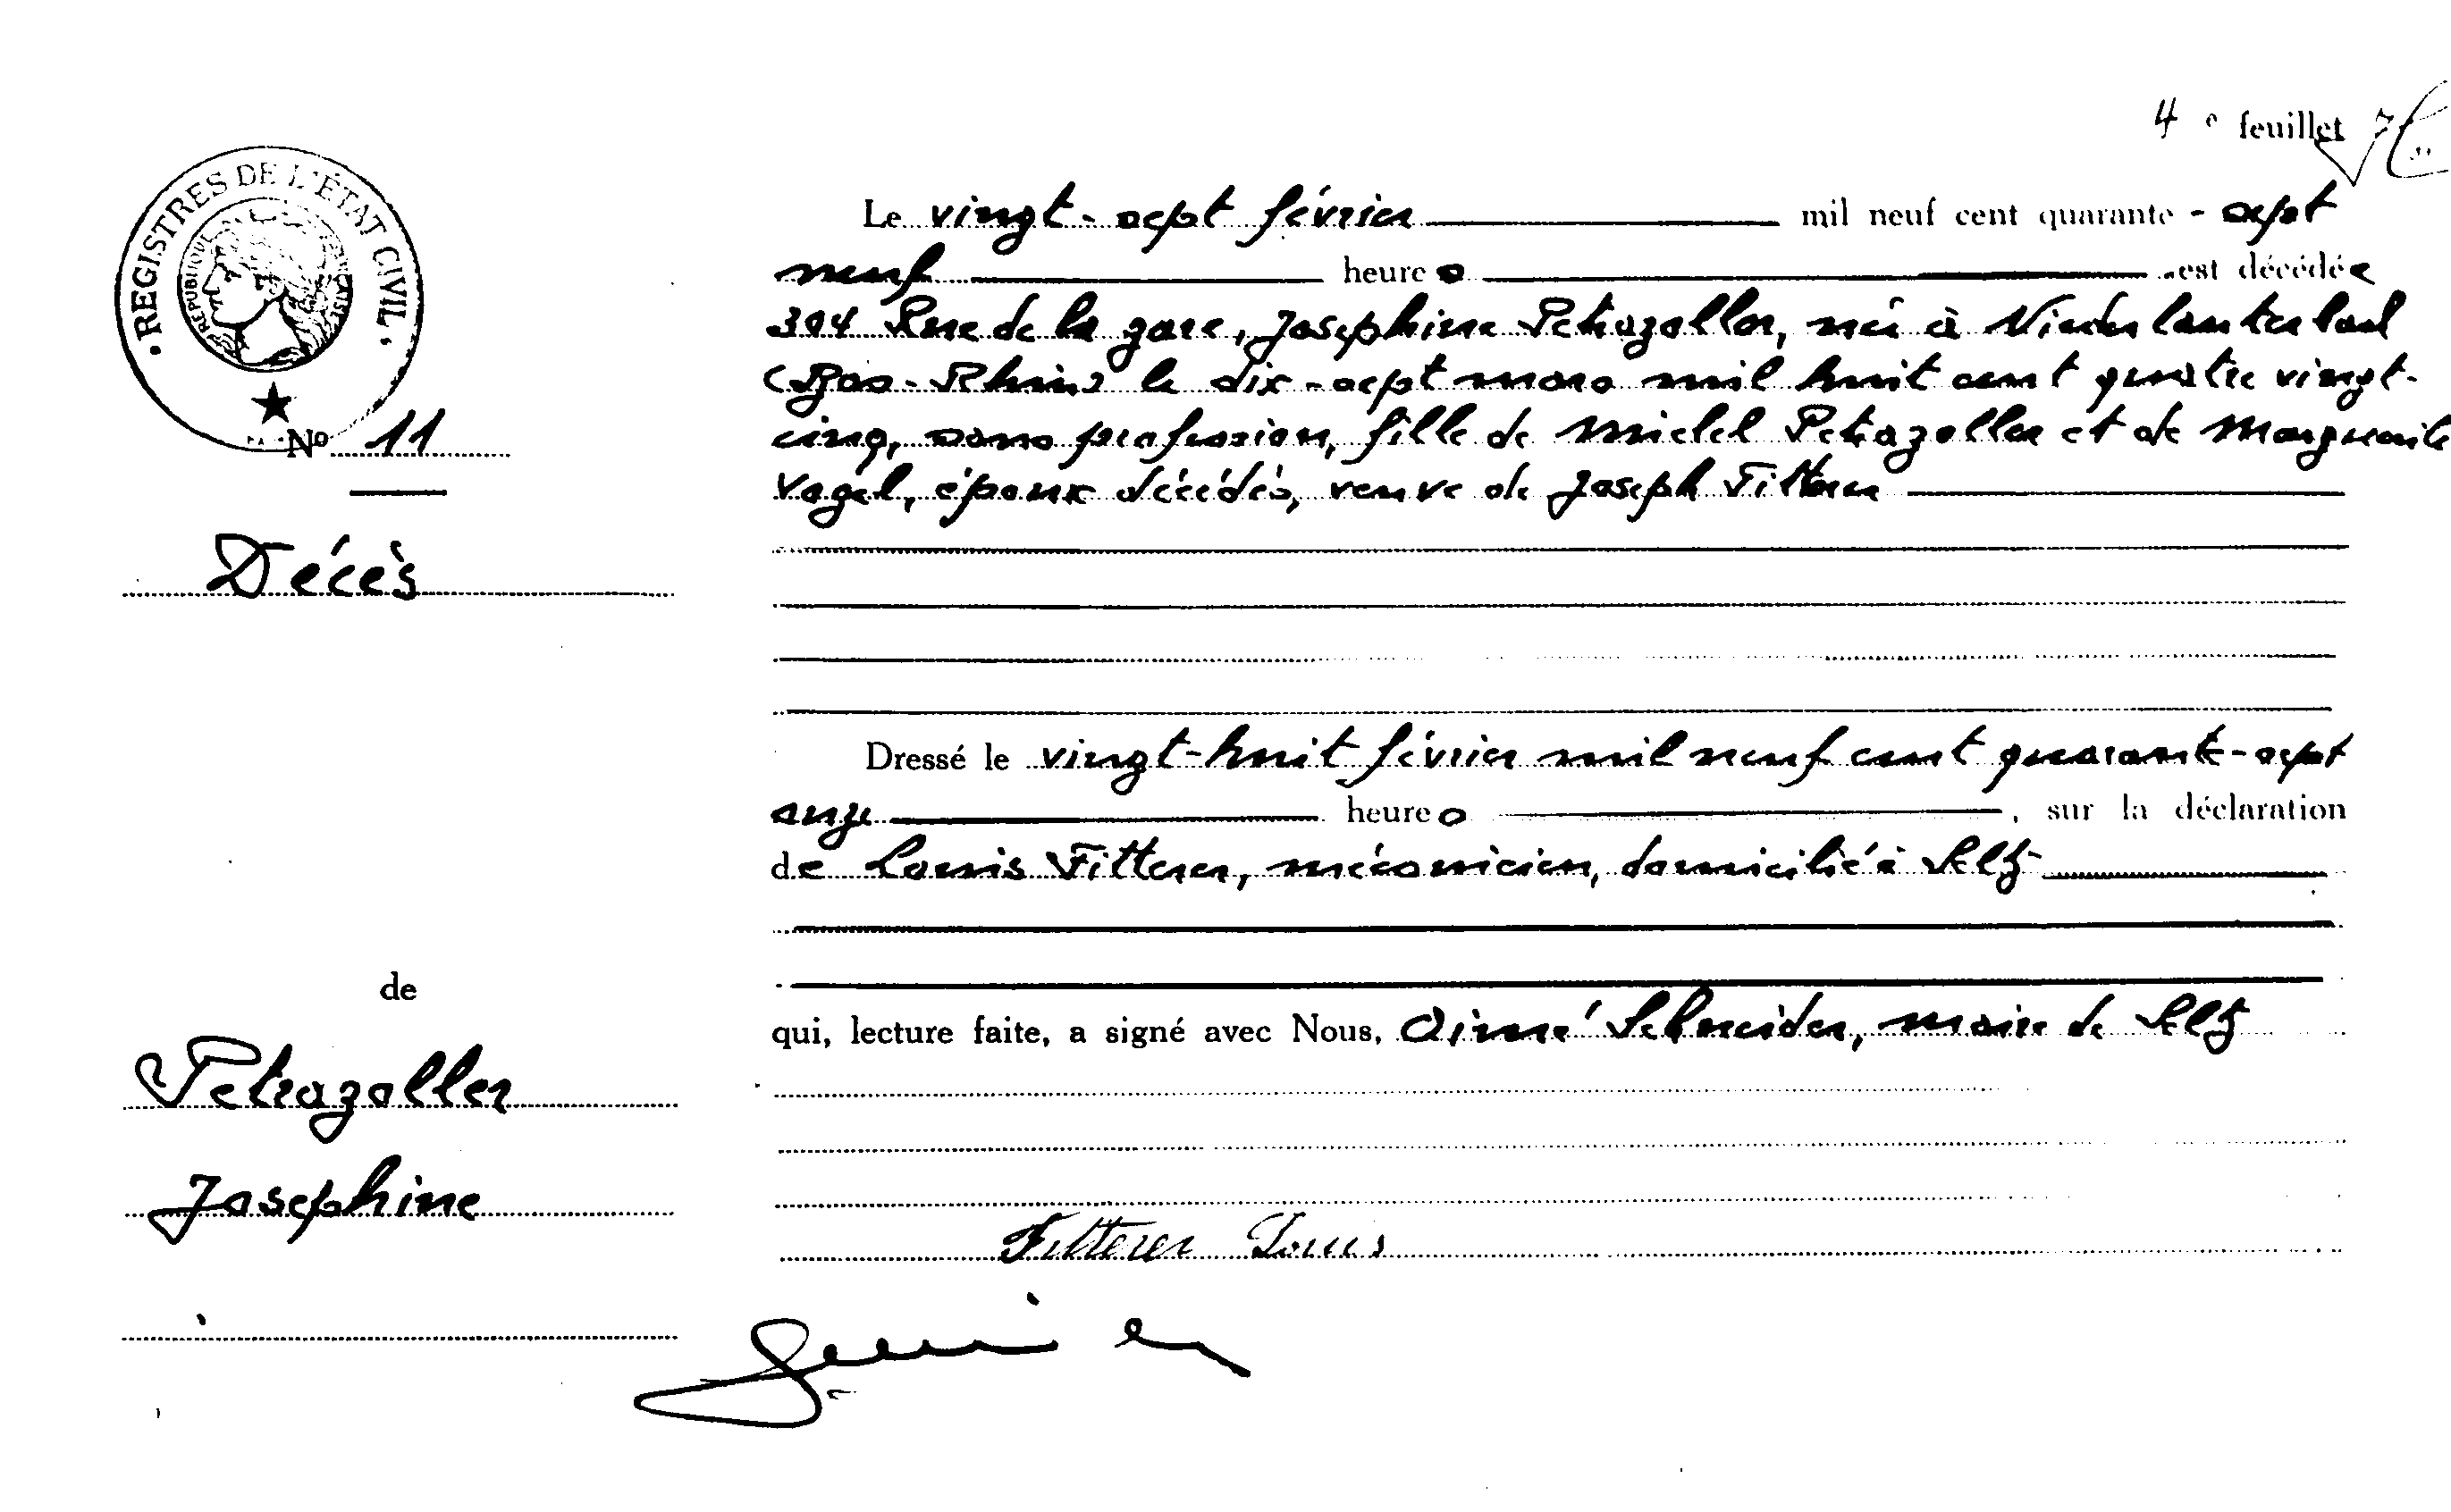 4e feuillet
REGISTRES DE L'ÉTAT CIVIL
RÉPUBLIQUE FRANÇAISE
Le vingt-sept février mil neuf cent quarante-sept
neuf heures est décédée
304 Rue de la gare, Josephine Petrazoller, née à Niederlauterbach
(Bas-Rhin) le dix-sept mars mil huit cent quatre vingt-
cinq, sans profession, fille de Michel Petrazoller et de Marguerite
Vogel, époux décédés, veuve de Joseph Fitterer
No 11
Décès
de
Petrazoller
Josephine
Dressé le vingt-huit février mil neuf cent quarante-sept
onze heures, sur la déclaration
de Louis Fitterer, mécanicien, domicilié à Seltz
qui, lecture faite, a signé avec Nous, Aimé Schneider, maire de Seltz
Fitterer Louis